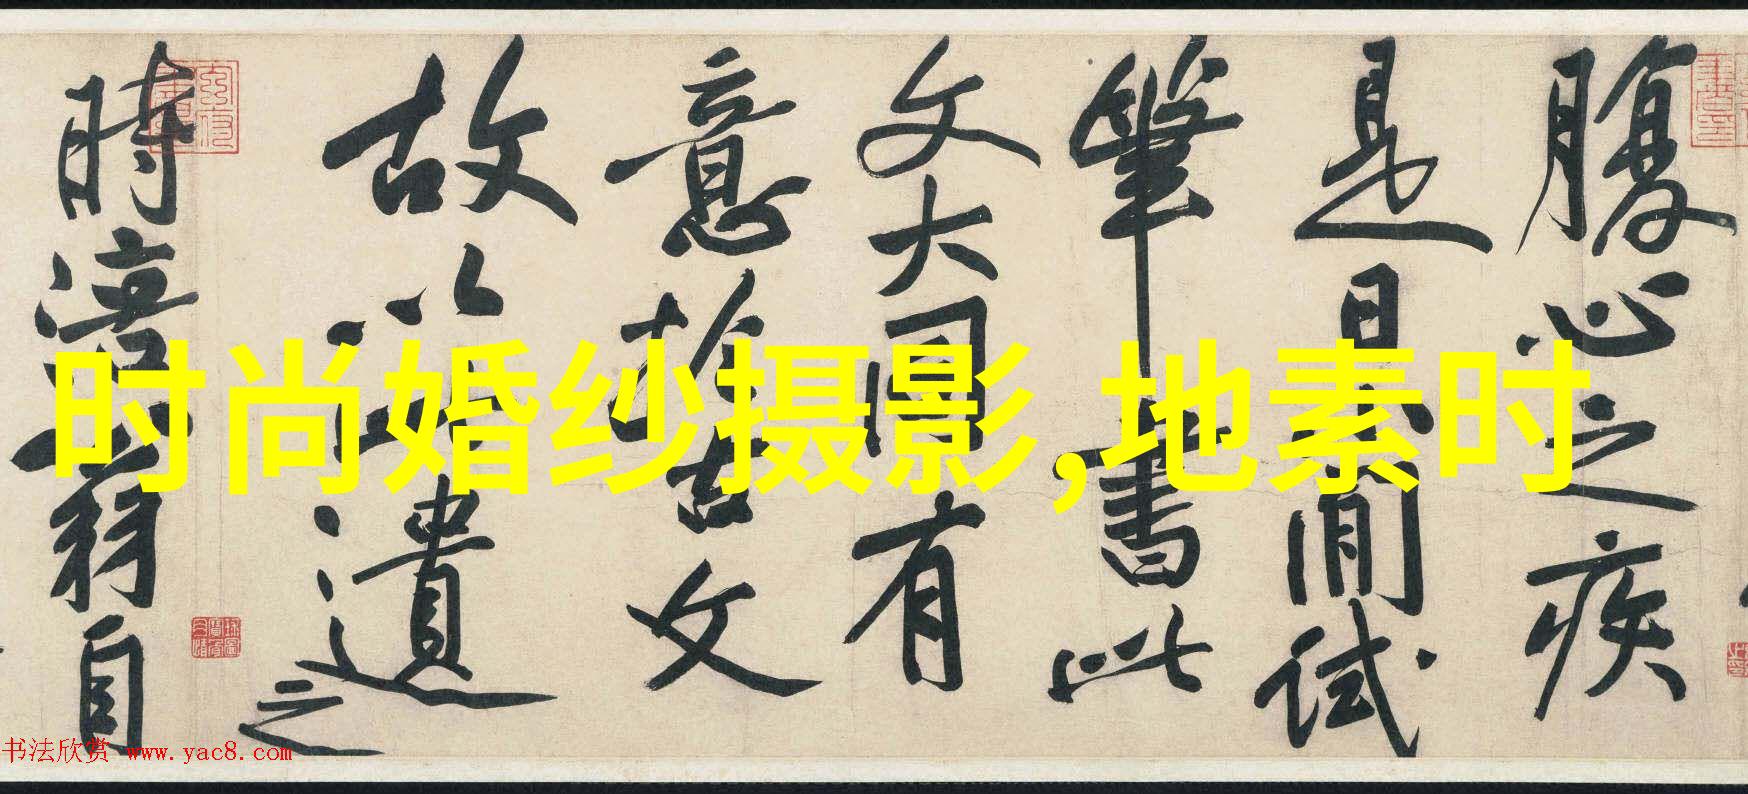 腹心之疾
是日小閒試
筆書此
文大同有
意於古文
故以此遺
之
時涪翁自
时尚婚纱摄影,地素时
书法欣赏 www.yac8.com